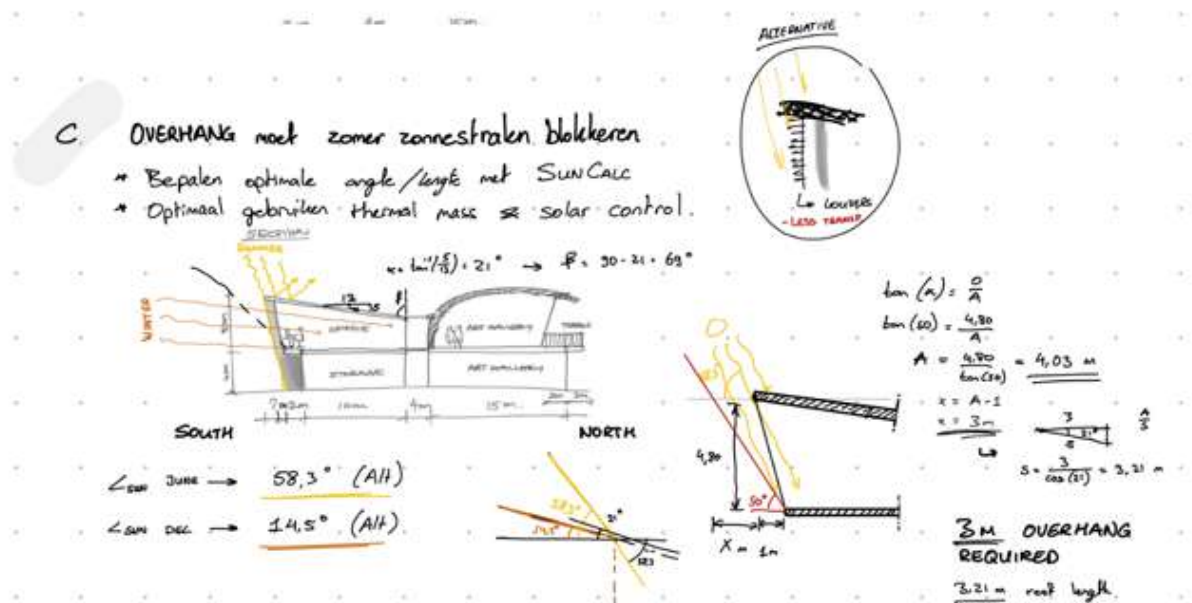 ALTERNATIVE
C. OVERHANG moet zomer zonnestralen blokkeren
* Bepalen optimale angle/lengte met SUNCALC
* Optimaal gebruiken thermal mass & solar control.
LOUVERS
- LESS TRANSP.
SECTION
SUMMER
α = tan⁻¹(5/13) = 21° → β = 90 - 21 = 69°
WINTER
STORAGE
ART GALLERY
ART GALLERY
TERRACE
10m
4m
15m
SOUTH
NORTH
∠SUN JUNE → 58,3° (Alt)
∠SUN DEC → 14,5° (Alt)
58,3°
14,5°
21°
4,80
50°
X m
1m
tan (α) = O/A
tan (50) = 4,80/A
A = 4,80/tan(50) = 4,03 m
x = A - 1
x = 3m
3
21°
S
A/S
S = 3/cos(21) = 3,21 m
3M OVERHANG
REQUIRED
3.21 m roof length.